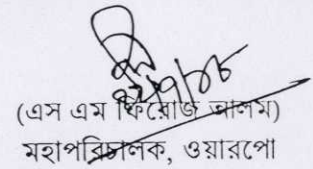 (এস এম ফিরোজ আলম)
মহাপরিচালক, ওয়ারপো